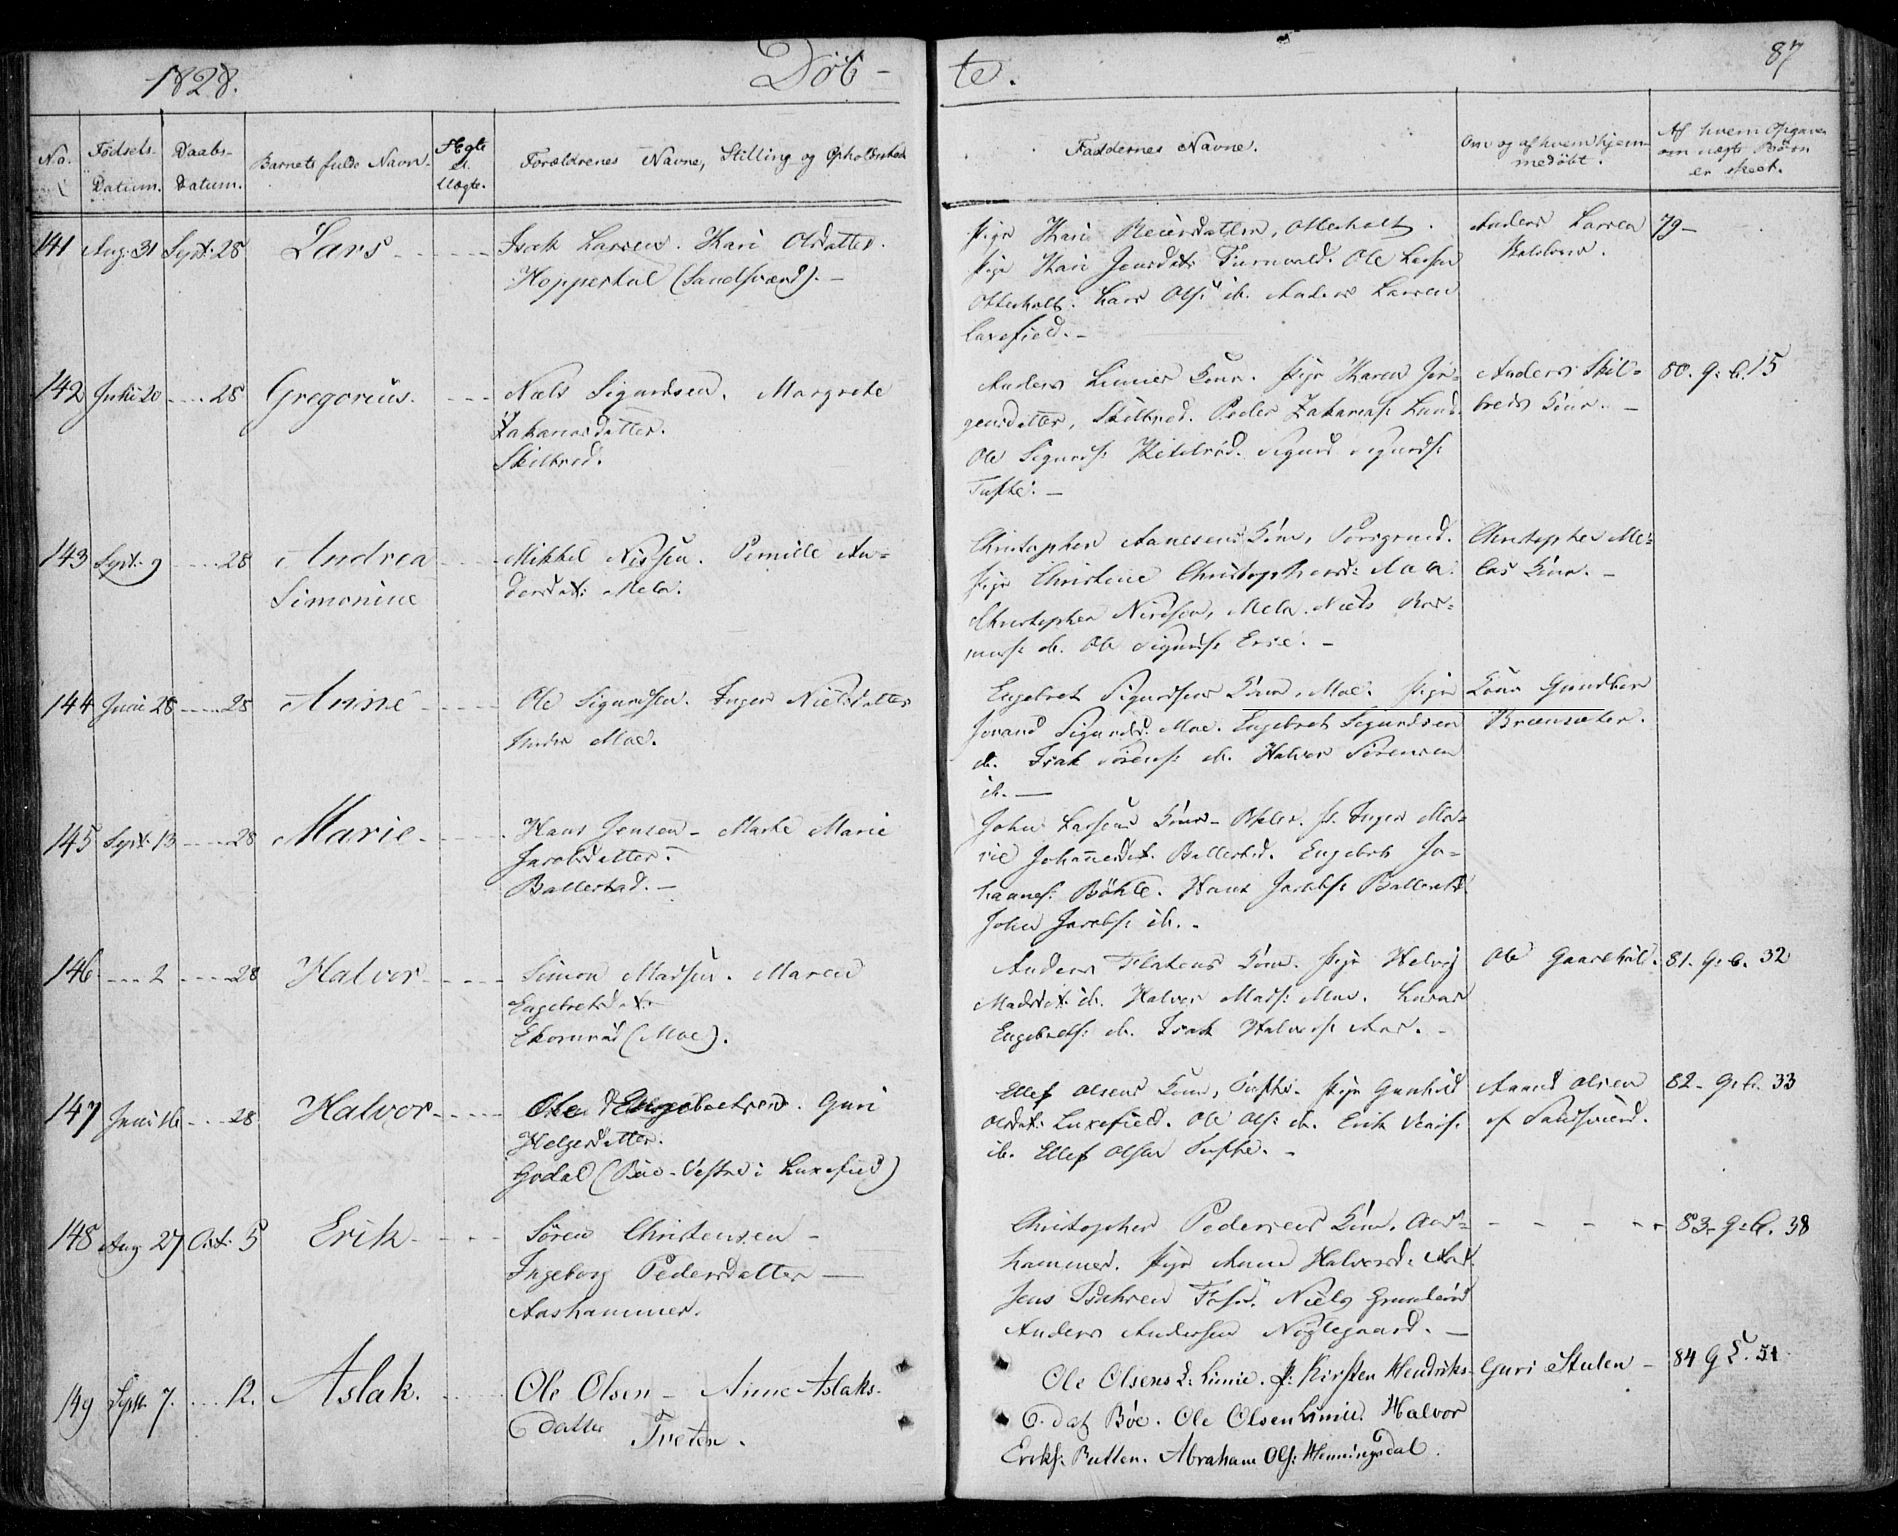 1828. Døb-
te. 87
No. Fødsels- Datum. Daabs- Datum. Barnets fulde Navn. Ægte el. Uægte. Forældrenes Navne, Stilling og Opholdssted
Faddernes Navne. Om og af hvem hjem-
medøbt.
Af hvem Opgaven
om uægte Børn
er skeet.
141 Aug. 31 Sept. 28 Lars Isak Larsen. Kari Olsdatter.
Hoppestul (Sandsværd). -
Pige Kari Reiersdatter, Otterholt.
Pige Kari Jensdatt. Ole Larsen
Otterholt. Lars Ols: ib. Anders Larsen
Luxefield. -
Anders Larsen
79 -
142 Juli 20 28 Gregorius. Niels Sigurdsen. Margrete
Zakariasdatter.
Skilbred.
Anders Limies Kone. Pige Karen Jør-
gensdatter, Skilbred. Peder Zakarias: Lund.
Ole Sigurds: Sigurd Sigurds:
Tufte. -
Anders Skil-
breds Kone. -
80. G. b. 15
143 Sept. 9 28 Andrea
Simonine
Mikkel Nissen. Pernille An-
dersdat: Mela.
Christopher Aanesens Kone, Porsgrund.
Pige Christine Christophersd:
Christopher Nissen, Mela. Niels Ras-
mus: ib. Ole Sigurds: -
Christopher Me-
las Kone. -
144 Juni 28 28 Anne Ole Sigurdsen. Inger Nielsdatter
Moe.
Engebret Sigurdsens Kone, Moe. Pige
Jorand Sigurdsd. Moe. Engebret Sigurdsen
ib. Isak Sørens: ib. Halvor Sørensen
ib. -
Kone Gundbor
Brænsæter.
145 Sept. 13 28 Marie Hans Jensen - Marte Marie
Jacobsdatter.
Ballestad. -
John Larsens Kone - P. Inger Ma-
rie Johannesdat. Ballestad. Engebret Jo-
hannes: Bøhle. Hans Jacobs: Ballestad
John Jacobs: ib. -
146 2 28 Halvor Simon Madsen. Maren
Engebretsdat:
Ekornrød (Moe).
Anders Flatens Kone. Pige Helvig
Madsdat: ib. Halvor Mads: Moe. Lars
Engebrets: ib. Isak Halvors: Aas. -
Ole Gaarehuld.
81. G. b. 32
147 Juni 16 28 Halvor Ole Engebretsen. Guri
Helgesdatter.
Godal (Bøe-Vestre i Luxefield)
Ellef Olsens Kone, Tufte. Pige Gunhild
Olsdat: Luxefield. Ole Ols: ib. Erik
ib. Ellef Olsen Tufte. -
Aanund Olsen
af Sandsværd.
82 - G. b. 33
148 Aug. 27 Oct. 5 Erik Søren Christensen -
Ingeborg Pedersdatter -
Aashammer.
Christopher Pedersens Kone, Aas-
hammer. Pige Anne Halvorsd:
Jens Niels
Anders Andersen Nøglegaard. -
83 - G. b. 38
149 Sept. 7. 12. Aslak. Ole Olsen - Anne Aslaks-
datter Treten.
Ole Olsens K: Limie. P: Kirsten Hendriks-
dat Bøe. Ole Olsen Limie. Halvor
Eriks: Butten. Abraham Ols: Henningsdal.
Guri Stulen -
84 G b. 31